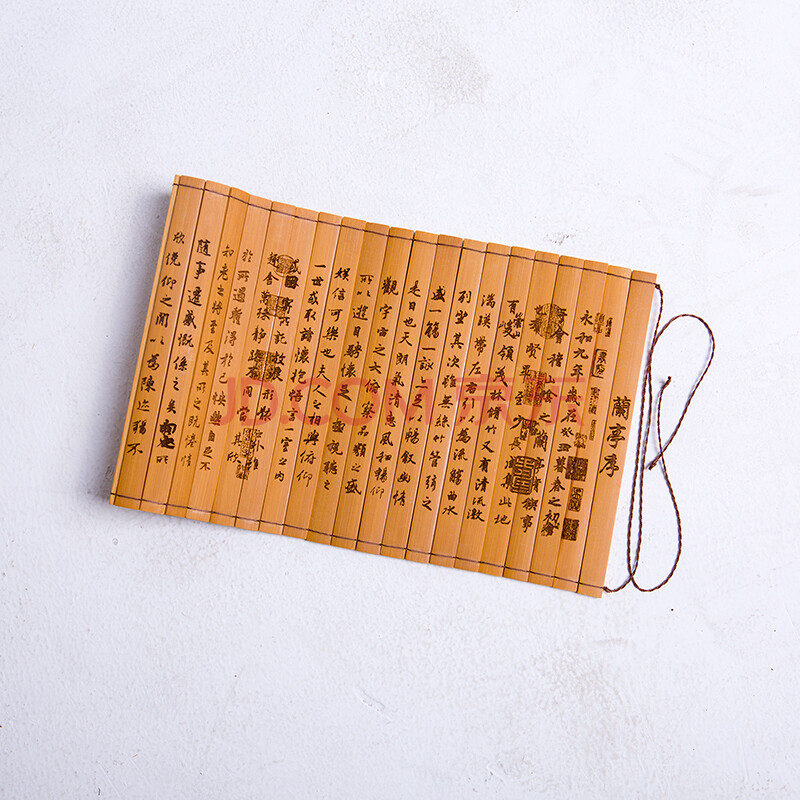 蘭亭序
永和九年歲在癸丑暮春之初會
會稽山陰之蘭亭脩稧事
羣賢畢至少長咸集此地
有崇山峻領茂林脩竹又有清流激
湍暎帶左右引以為流觴曲水
列坐其次雖無絲竹管弦之
盛一觴一詠亦足以暢叙幽情
是日也天朗氣清惠風和暢仰
觀宇宙之大俯察品類之盛
所以遊目騁懷足以極視聽之
娛信可樂也夫人之相與俯仰
一世或取諸懷抱悟言一室之內
或因寄所託放浪形骸之外雖
趣舍萬殊靜躁不同當其欣
於所遇蹔得於己快然自足不
知老之將至及其所之既惓情
隨事遷感慨係之矣向之所
欣俛仰之閒以為陳迹猶不
JD.COM 京东